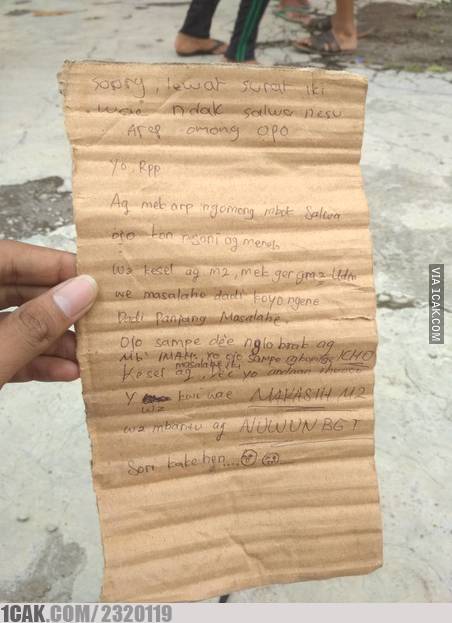 sorry, lewat surat iki
wae ndak salwa nesu
Arep omong opo
Yo, Rpp
Ag mek arp ngomong mbek Salwa
ojo kon ngsoni ag meneh
wz kesel ag m2, mek ger gmz Udin
we masalahe dadi koyo ngene
Dadi Panjang Masalahe.
Ojo sampe dee nglobrak ag
Mb' IMAH, yo ojo sampe ICHO
Kesel ag, masalahe iki yo
Y wz kwi wae MAKASIH M2
wz mbantu ag NUWUN BGT
Sori kakehen....
VIA 1CAK.COM
1CAK.COM/2320119